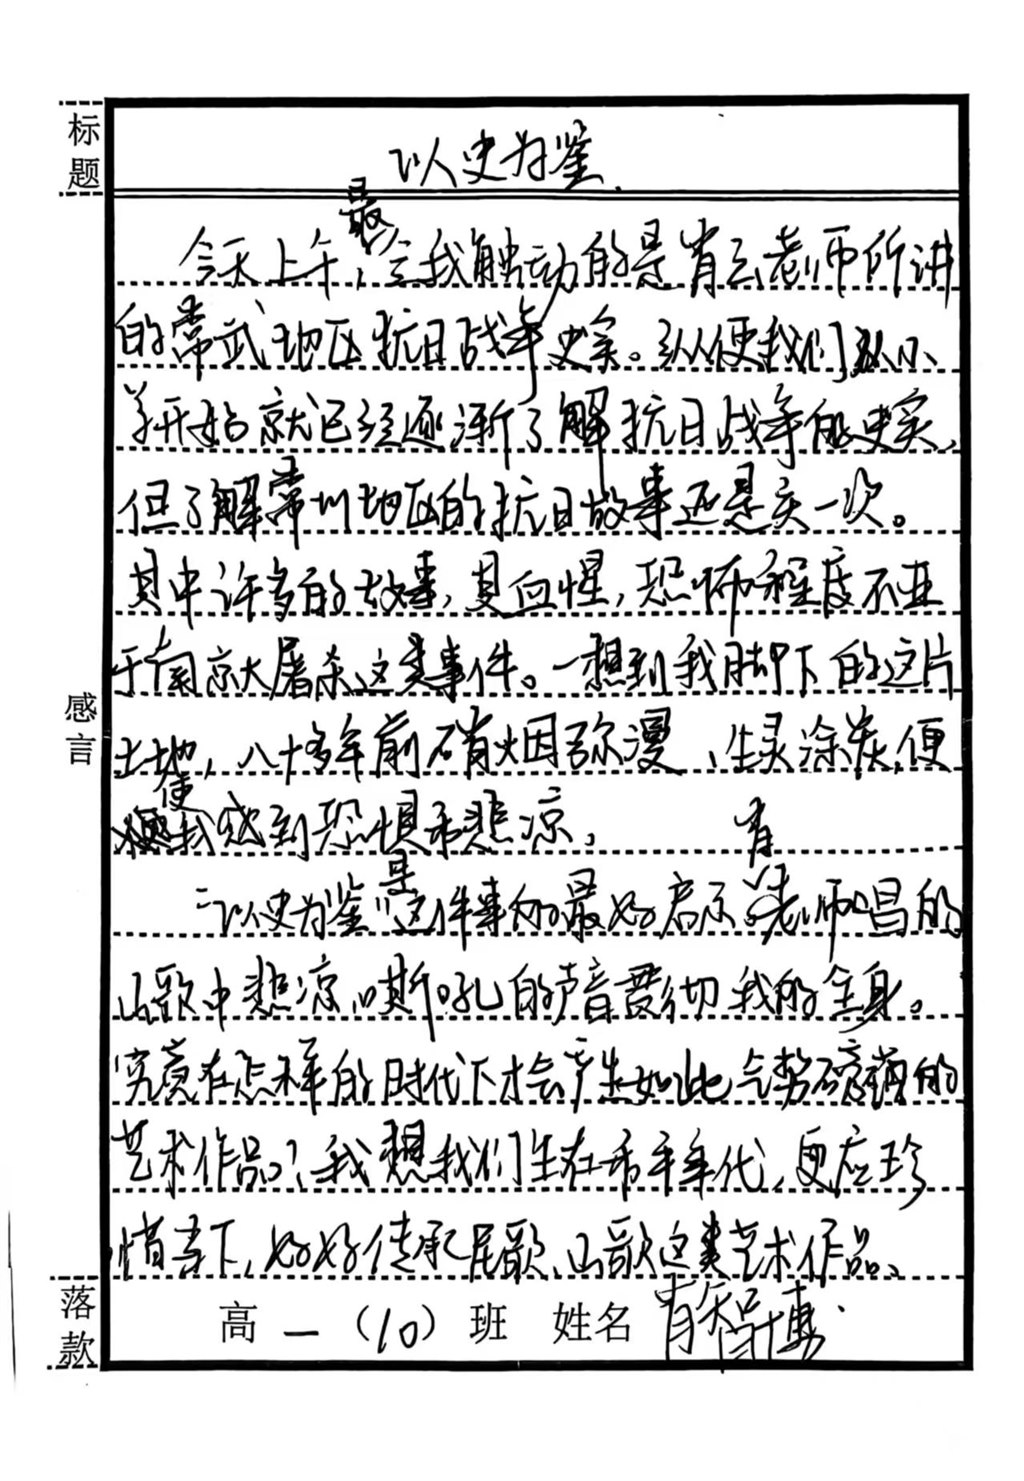 标题
以史为鉴
最
今天上午，令我触动的是肖云老师所讲
的常武地区抗日战争史实。纵使我们从小
学开始就已经逐渐了解抗日战争的史实，
但了解常州地区的抗日故事还是头一次。
其中许多的故事，其血惺，恐怖程度不亚
于南京大屠杀这类事件。一想到我脚下的这片
土地，八十多年前硝烟弥漫、生灵涂炭，便
使我感到恐惧和悲凉。
有
是
“以史为鉴”这件事的最好启示。老师唱的
山歌中悲凉、嘶吼的声音贯彻我的全身。
究竟在怎样的时代下才会产生如此气势磅礴的
艺术作品？我想我们生在和平年代，更应珍
惜当下，好好传承民歌、山歌这类艺术作品。
感言
落款
高一（10）班 姓名